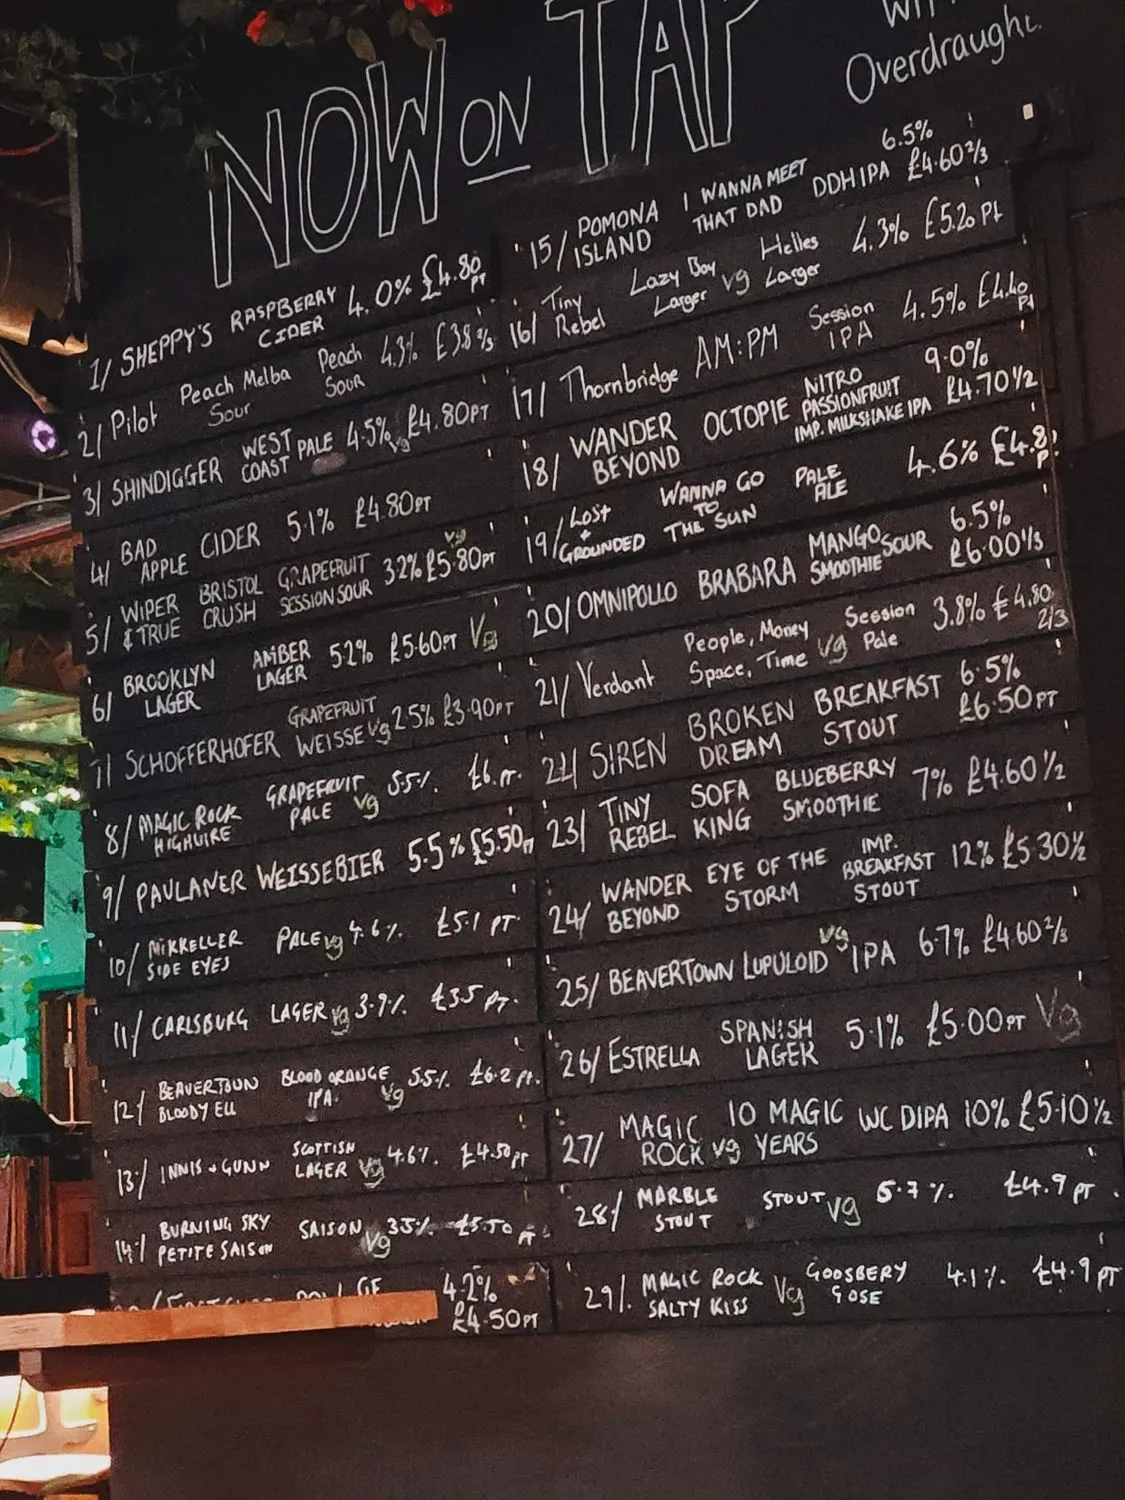 NOW ON TAP
Overdraught
1/ SHEPPY'S RASPBERRY CIDER 4.0% £4.80 PT
2/ Pilot Peach Melba Sour Peach Sour 4.3% £3.8 2/3
3/ SHINDIGGER WEST COAST PALE 4.5% Vg £4.80PT
4/ BAD APPLE CIDER 5.1% £4.80PT
5/ WIPER & TRUE BRISTOL CRUSH GRAPEFRUIT SESSION SOUR 3.2% Vg £5.80PT
6/ BROOKLYN LAGER AMBER LAGER 5.2% £5.60PT Vg
7/ SCHOFFERHOFER GRAPEFRUIT WEISSE Vg 2.5% £3.90PT
8/ MAGIC ROCK HIGHWIRE GRAPEFRUIT PALE Vg 5.5% £6. PT.
9/ PAULANER WEISSEBIER 5.5% £5.50PT
10/ MIKKELLER SIDE EYES PALE Vg 4.6% £5.1 PT
11/ CARLSBURG LAGER Vg 3.9% £3.5 PT.
12/ BEAVERTOWN BLOODY ELL BLOOD ORANGE IPA. Vg 5.5% £6.2 PT.
13/ INNIS + GUNN SCOTTISH LAGER Vg 4.6% £4.50 PT
14/ BURNING SKY PETITE SAISON SAISON Vg 3.5% £5.70 PT.
4.2%
£4.50PT
15/ POMONA ISLAND I WANNA MEET THAT DAD DDH IPA 6.5% £4.60 2/3
16/ Tiny Rebel Lazy Boy Larger Vg Helles Larger 4.3% £5.20 Pt
17/ Thornbridge AM:PM Session IPA 4.5% £4.40 Pt
18/ WANDER BEYOND OCTOPIE NITRO PASSIONFRUIT IMP. MILKSHAKE IPA 9.0% £4.70 1/2
19/ LOST + GROUNDED WANNA GO TO THE SUN PALE ALE 4.6% £4.8 P
20/ OMNIPOLLO BRABARA MANGO SMOOTHIE SOUR 6.5% £6.00 1/3
21/ Verdant People, Money Space, Time Vg Session Pale 3.8% £4.80 2/3
22/ SIREN BROKEN DREAM BREAKFAST STOUT 6.5% £6.50PT
23/ TINY REBEL SOFA KING BLUEBERRY SMOOTHIE 7% £4.60 1/2
24/ WANDER BEYOND EYE OF THE STORM IMP. BREAKFAST STOUT 12% £5.30 1/2
25/ BEAVERTOWN LUPULOID Vg IPA 6.7% £4.60 2/3
26/ ESTRELLA SPANISH LAGER 5.1% £5.00PT Vg
27/ MAGIC ROCK Vg 10 MAGIC YEARS WC DIPA 10% £5.10 1/2
28/ MARBLE STOUT STOUT Vg 5.7% £4.9 PT.
29/. MAGIC ROCK SALTY KISS Vg GOOSBERY GOSE 4.1% £4.9 PT